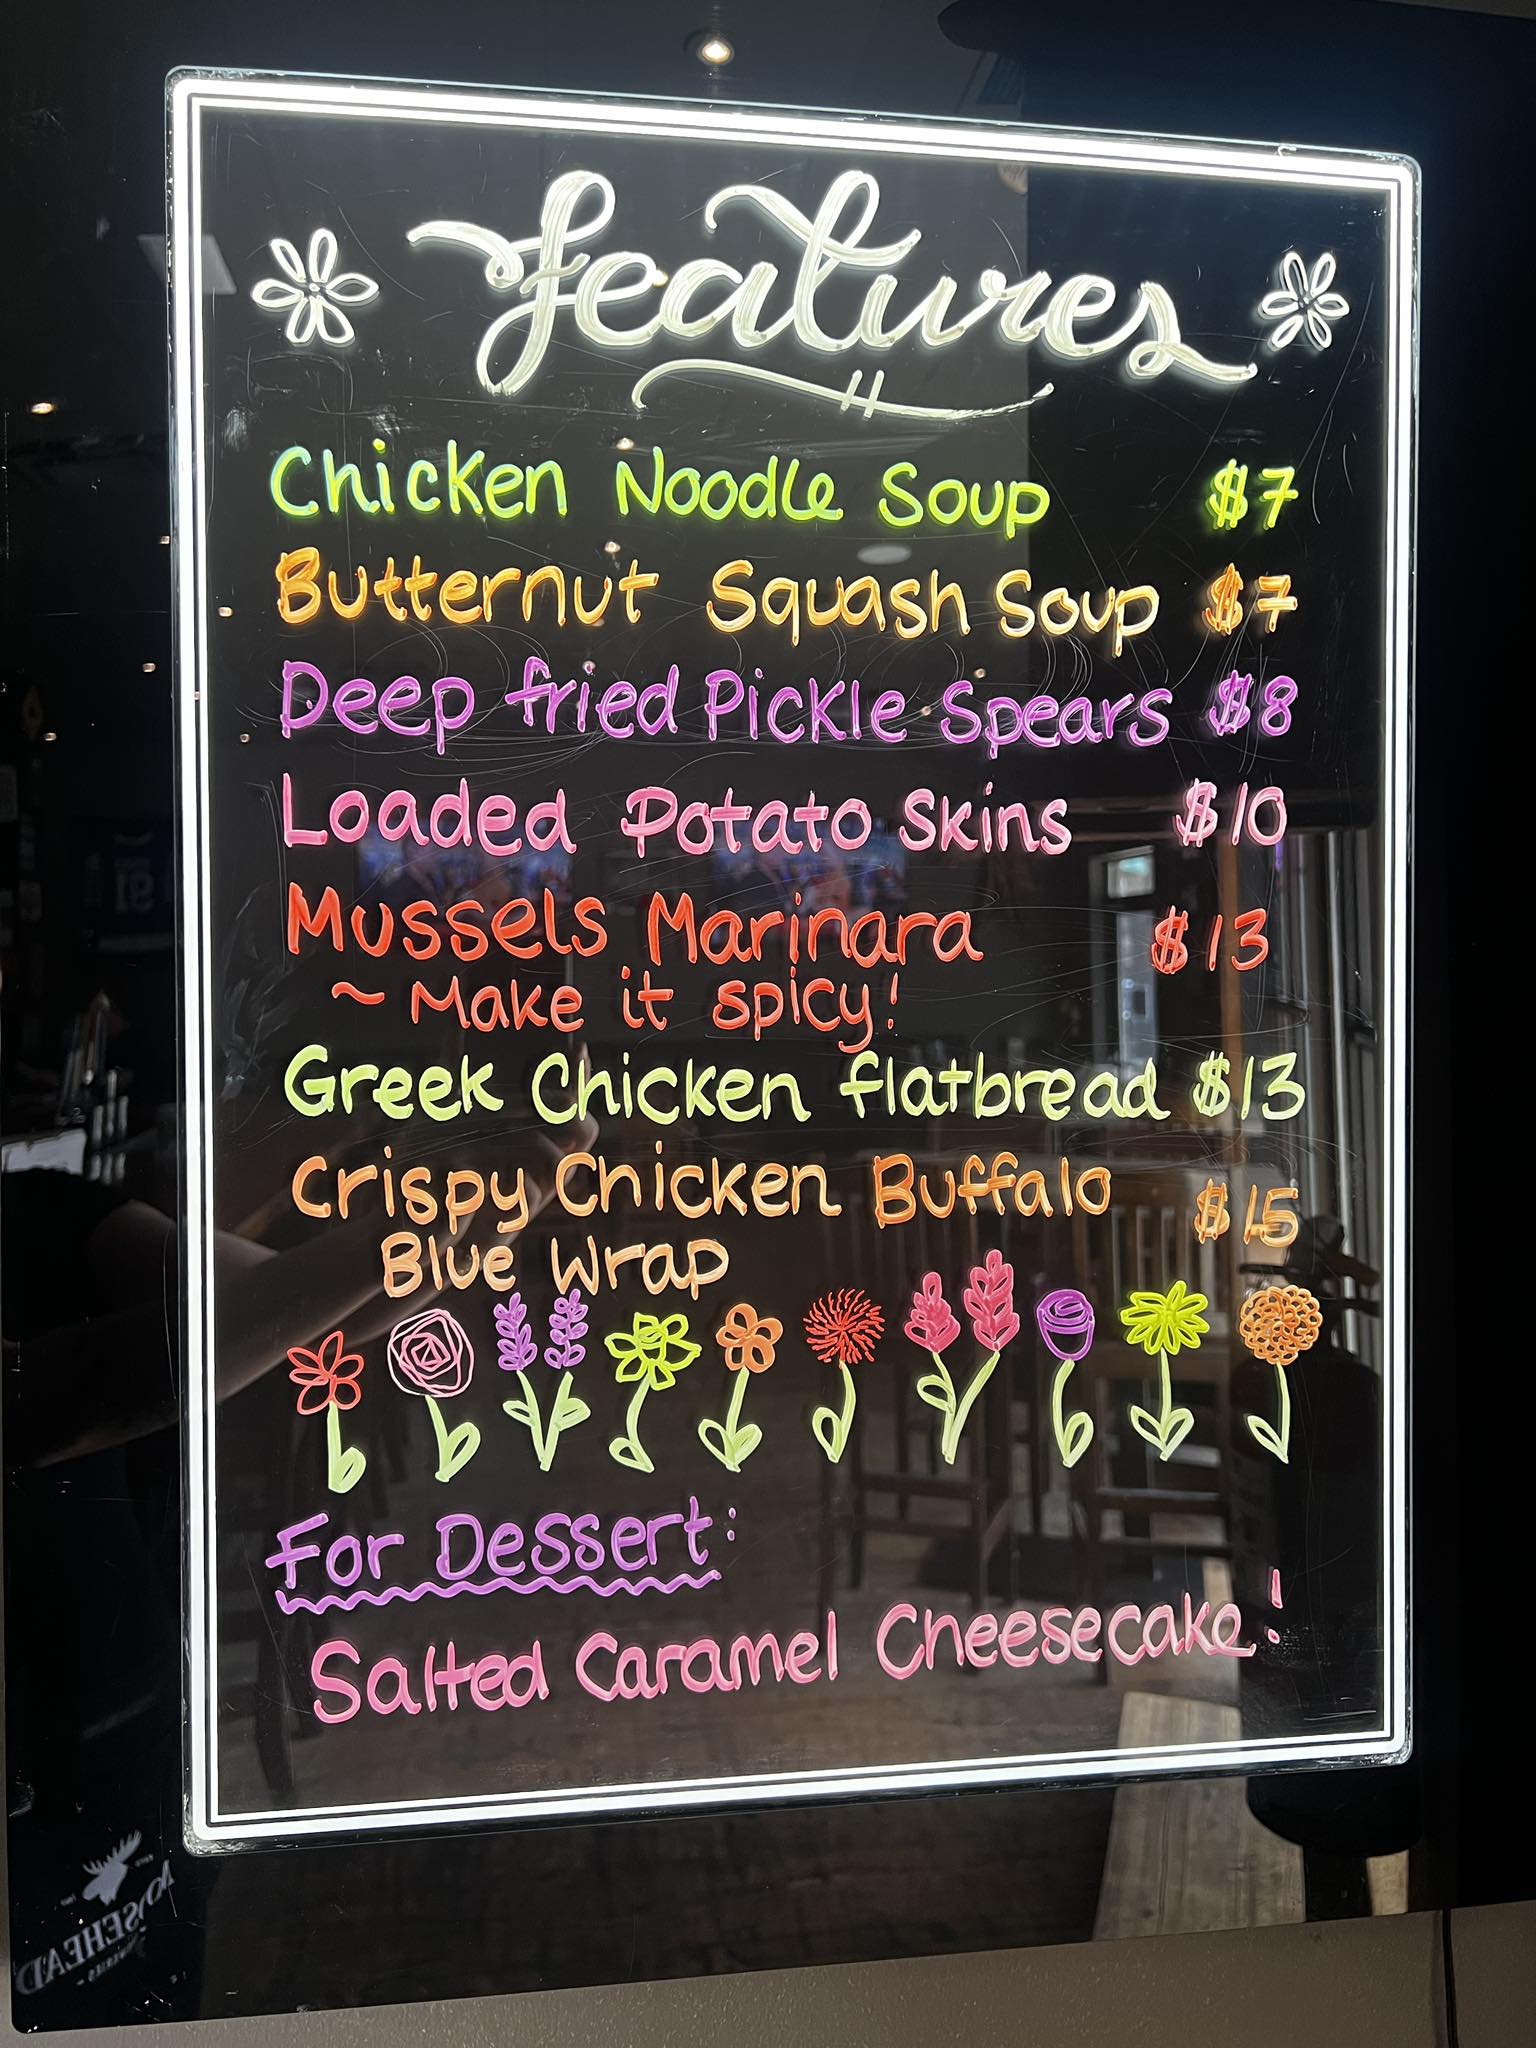 features
Chicken Noodle Soup $7
Butternut Squash Soup $7
Deep fried Pickle Spears $8
Loaded Potato Skins $10
Mussels Marinara $13
~ Make it spicy!
Greek Chicken flatbread $13
Crispy Chicken Buffalo $15
Blue Wrap
For Dessert:
Salted Caramel Cheesecake!
MOOSEHEAD